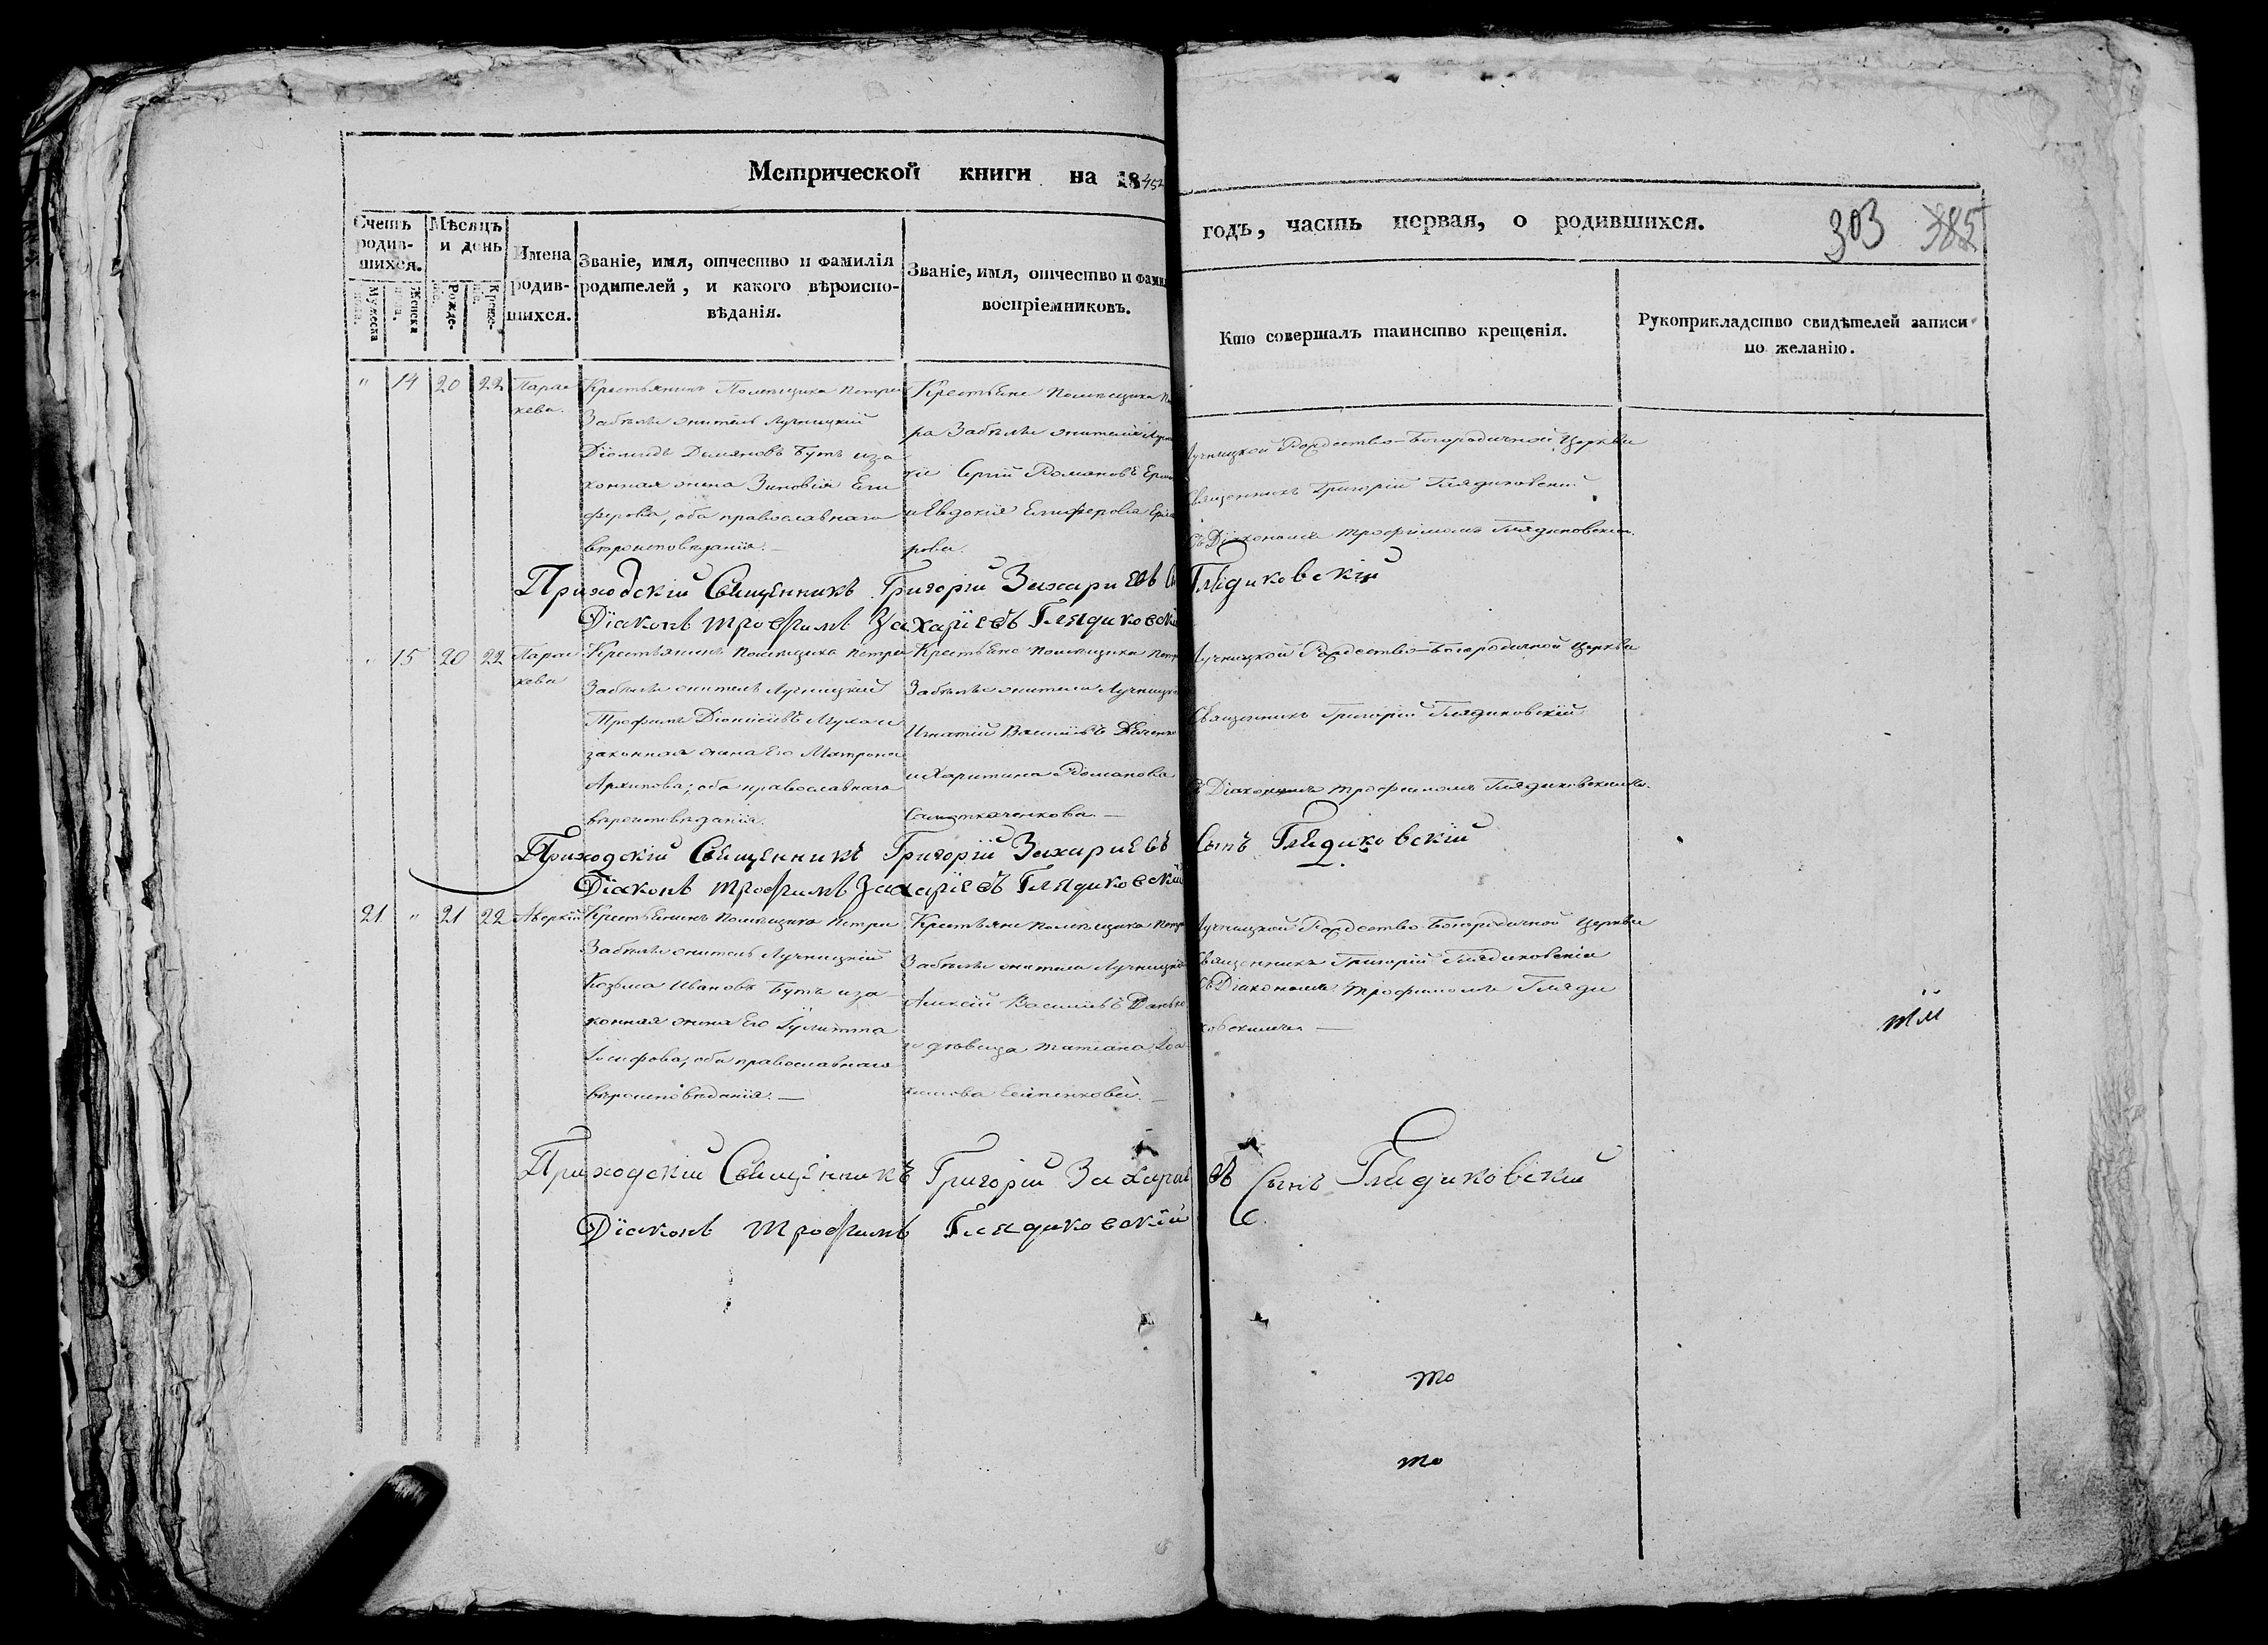 Метрической книги на 1845
годъ, часть первая, о родившихся.
303 385
Счетъ родив-шихся.
Мѣсяцъ и день
Имена родив-шихся.
Званіе, имя, отчество и фамилія родителей, и какого вѣроиспо-вѣданія.
Званіе, имя, отчество и фами
воспріемниковъ.
Кто совершалъ таинство крещенія.
Рукоприкладство свидѣтелей записи
по желанію.
Мужеска пола.
Женска пола.
Рожде-
Креще-
" 14 20 22 Парас
кева.
Крестьянинъ Помѣщика Петра
Забѣлы житель Лучницкій
Діомидъ Демяновъ Бутъ и за
конная жена Зиновія Ели
ферова, оба православнаго
вѣроисповѣданія. —
Крестьяне помѣщика Пе
ра Забѣлы жители Лучн
кіе Сергій Романовъ
и Евдокія Елиферова
рова.
Лучницкой Рождество-Богородичной Церкви
Священникъ Григорій Глядиковскій
съ Діакономъ Трофимомъ Глядиковскимъ.
Приходскій Священникъ Григорій Захаріевъ Глядиковскій
Діаконъ Трофимъ Захаріевъ Глядиковскій
" 15 20 22 Парас
кева
Крестьянинъ помѣщика Петра
Забѣлы житель Лучницкій
Трофимъ Діонисіевъ Муха и
законная жена его Матрона
Архипова; оба православнаго
вѣроисповѣданія.
Крестьяне помѣщика Петра
Забѣлы жители Лучницкіе
Игнатій Василіевъ
и Харитина Романова
Лучницкой Рождество-Богородичной Церкви
Священникъ Григорій Глядиковскій
съ Діакономъ Трофимомъ Глядиковскимъ.
Приходскій Священникъ Григорій Захаріевъ Сынъ Глядиковскій
Діаконъ Трофимъ Захаріевъ Глядиковскій
21 " 21 22 Аверкій
Крестьянинъ помѣщика Петра
Забѣлы житель Лучницкій
Козьма Ивановъ Бутъ и за
конная жена его Іулитта
Іосифова; оба православнаго
вѣроисповѣданія. —
Крестьяне помѣщика Петра
Забѣлы жители Лучницкіе
Алексій Василіевъ
и дѣвица Татіана Іоа
кимова
Лучницкой Рождество-Богородичной Церкви
Священникъ Григорій Глядиковскій
съ Діакономъ Трофимомъ Гляди
ковскимъ. —
Приходскій Священникъ Григорій Захаріевъ Сынъ Глядиковскій
Діаконъ Трофимъ Глядиковскій